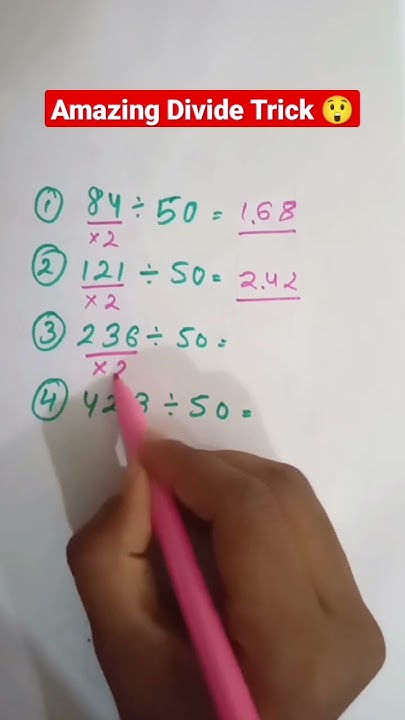 Amazing Divide Trick 😲
① 84 ÷ 50 = 1.68
×2
② 121 ÷ 50 = 2.42
×2
③ 236 ÷ 50 =
×2
④ ÷ 50 =